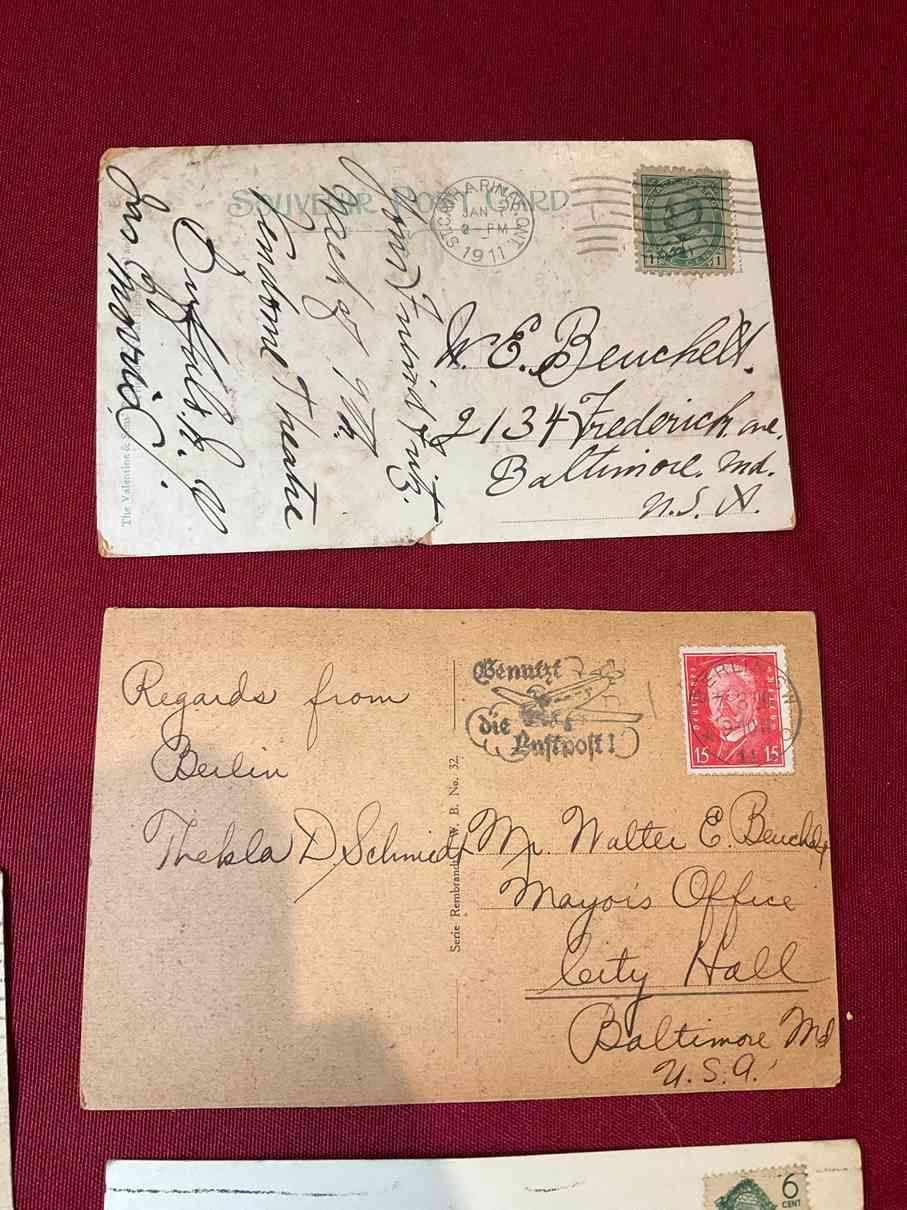 SOUVENIR POST CARD
ST. CATHARINES, ONT.
JAN
2-PM
1911
1 1
W. E. Beuchelt.
2134 Frederick ave.
Baltimore. Md.
U. S. A.
Your Friend Fritz.
Week of 19th,
Vendome Theatre
Buffalo. N. Y.
The Valentine & Sons
Regards from
Berlin
Thekla D. Schmidt
Serie Rembrandt W. B. No. 32.
Benutzt
die
Luftpost!
BERLIN
15 15
Mr. Walter E. Beuchelt
Mayor's Office
City Hall
Baltimore Md
U. S. A.
6
CENT